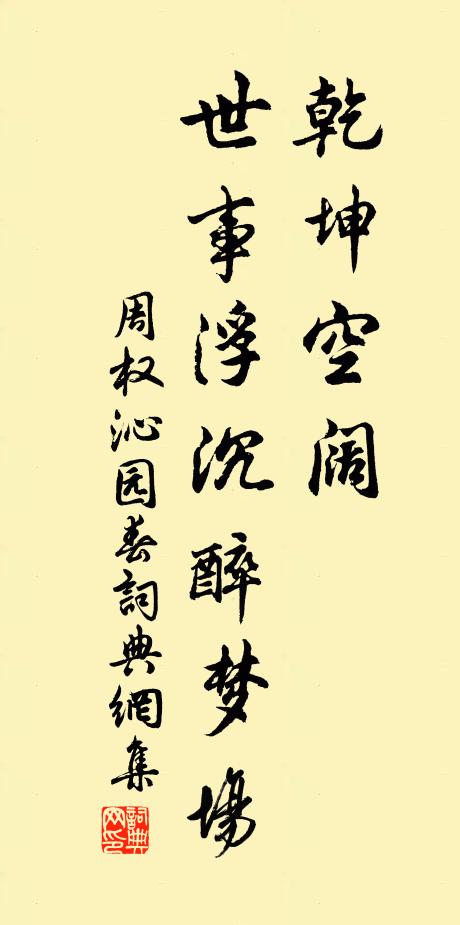 乾坤空阔
世事浮沉醉梦場
周权沁园春詞典網集
詞典网印